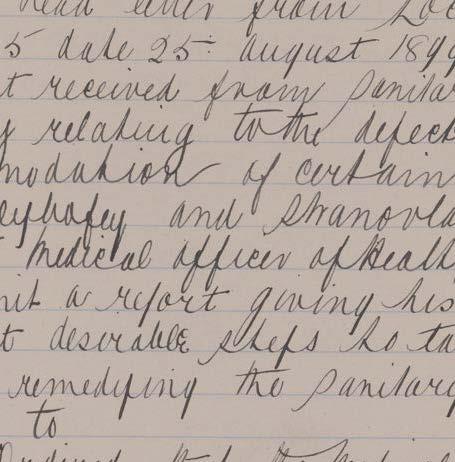 Read letter from Loc
5 date 25th august 1899
t received from sanitar
y relating to the defect
modation of certain
and stranorla
Medical officer of Healt
nit a report giving his
t desirable steps to ta
remedying the sanitary
to
Ordered that the Medical